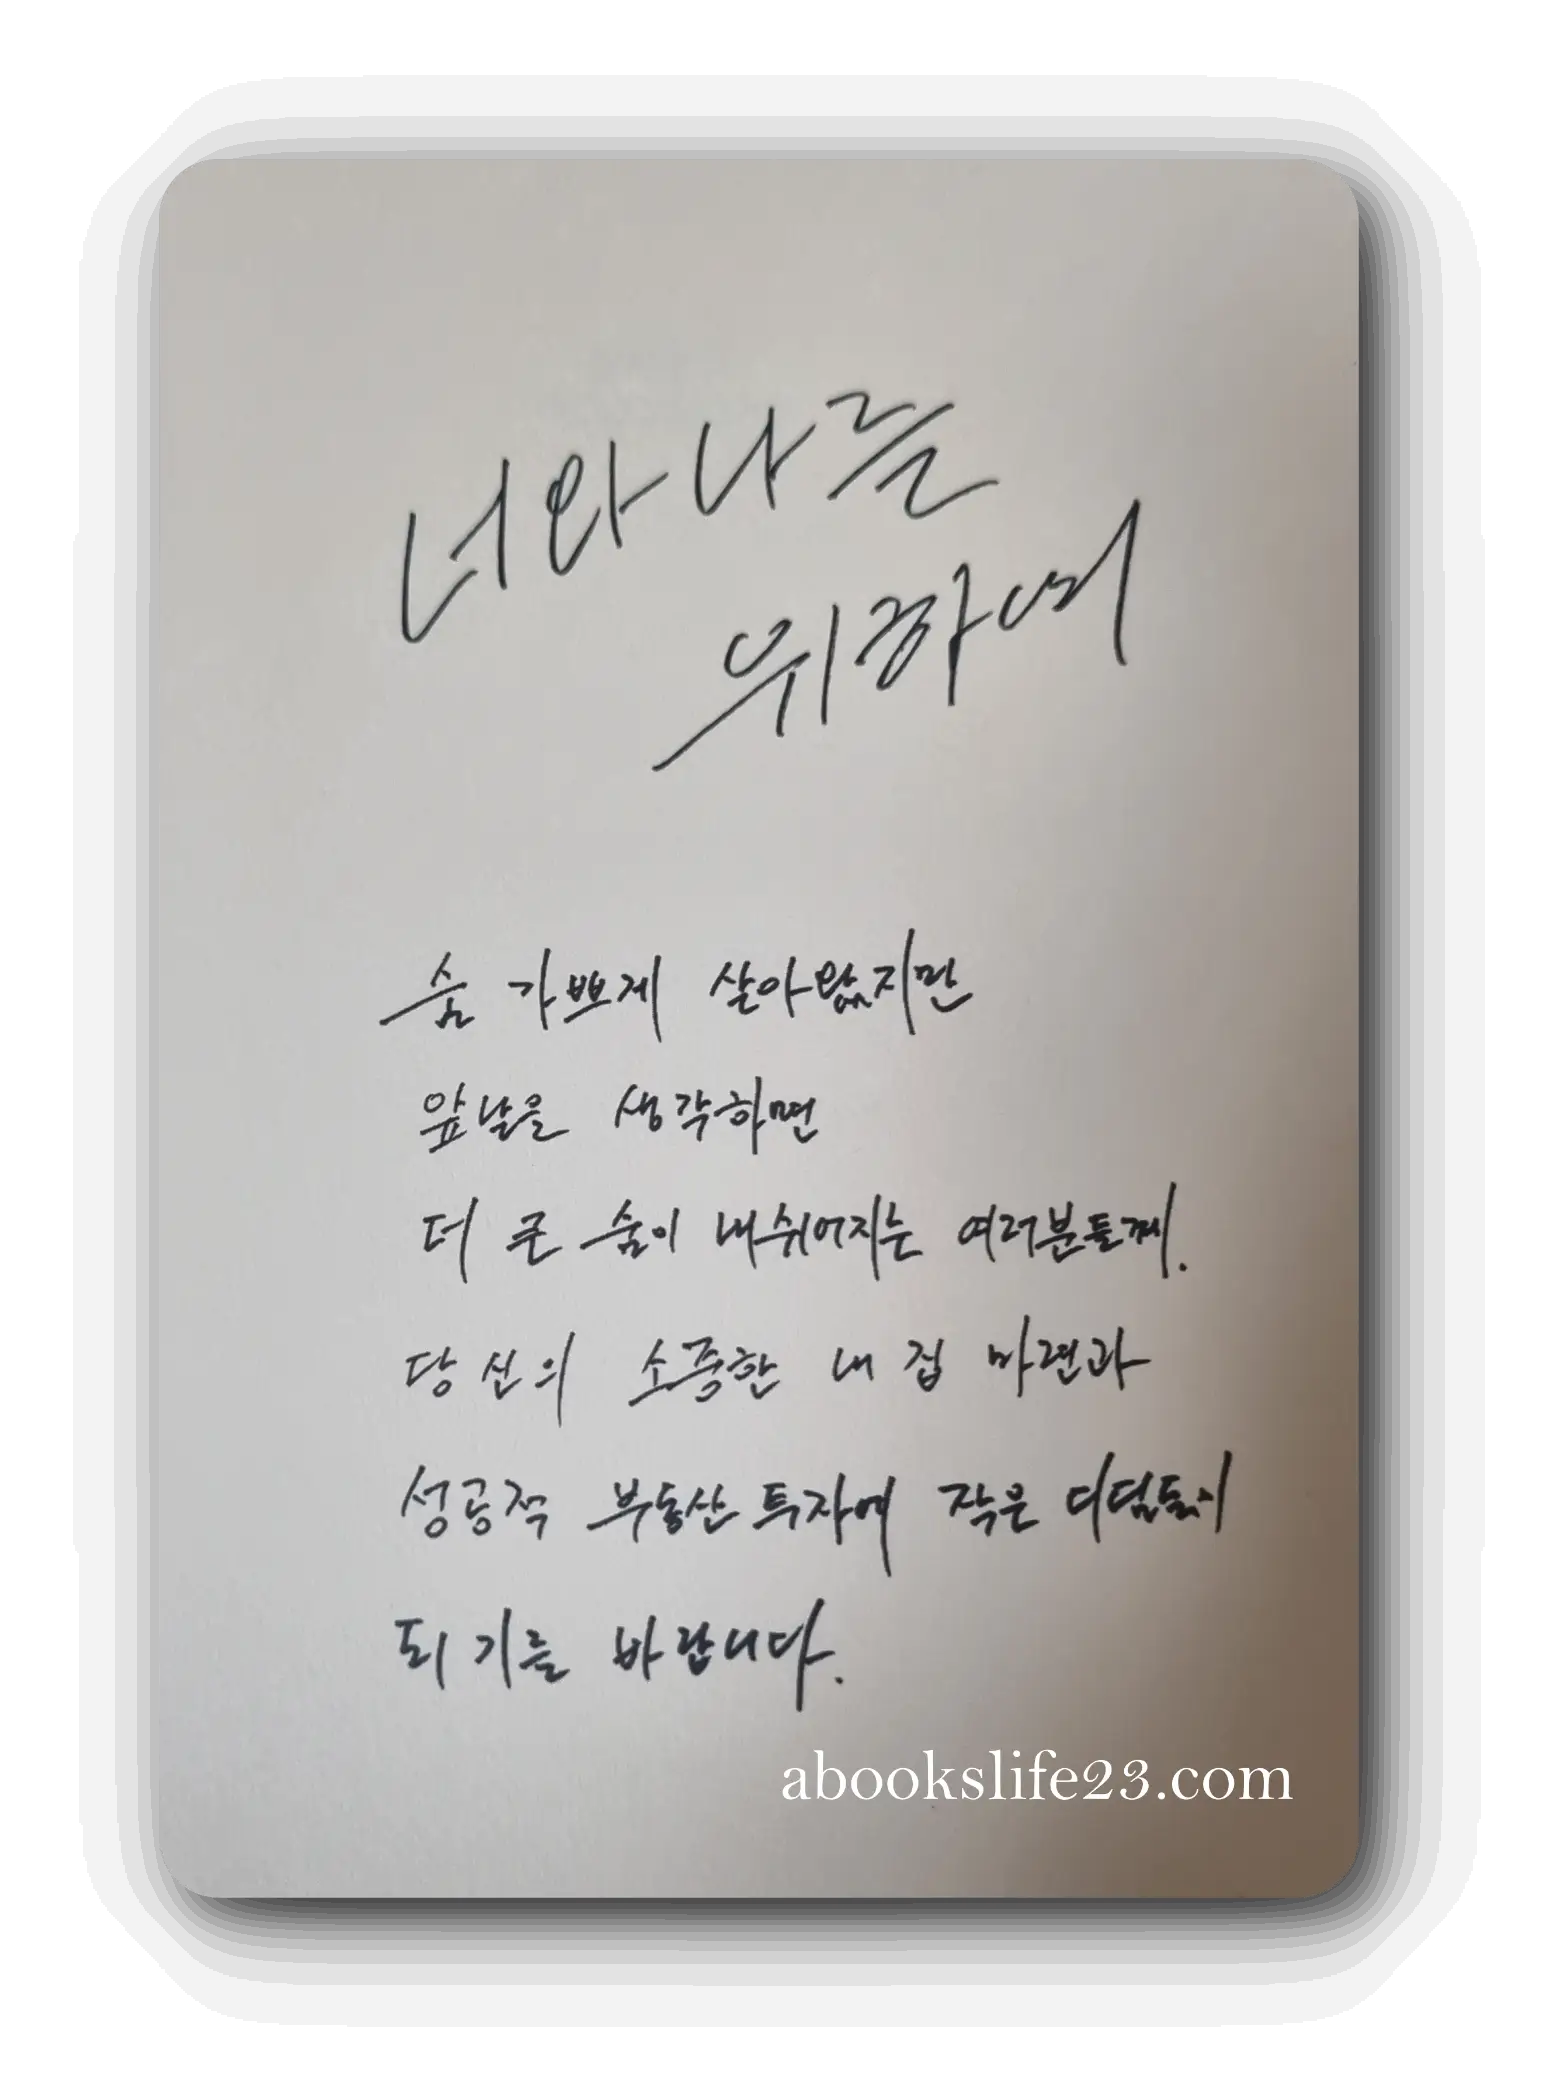 너와 나를
위하여
숨 가쁘게 살아왔지만
앞날을 생각하면
더 큰 숨이 내쉬어지는 여러분들께.
당신의 소중한 내 집 마련과
성공적 부동산 투자에 작은 디딤돌이
되기를 바랍니다.
abookslife23.com